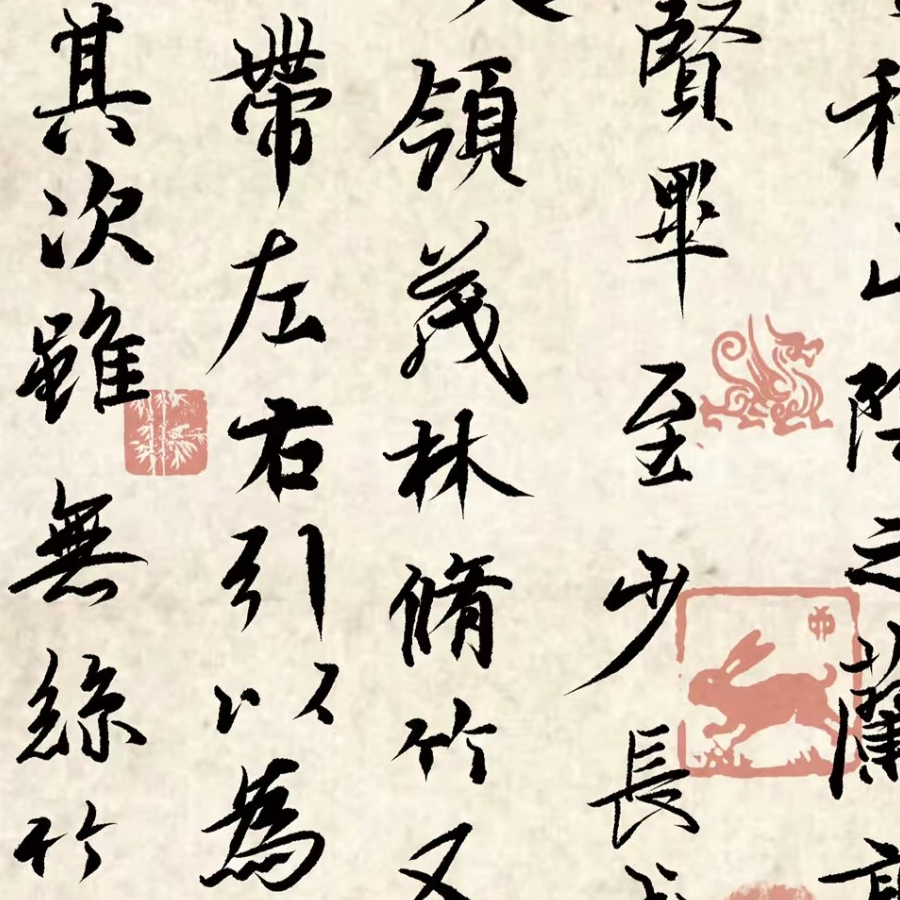 山陰之蘭
賢畢至少長
領茂林脩竹又
帶左右引以為
其次雖無絲竹